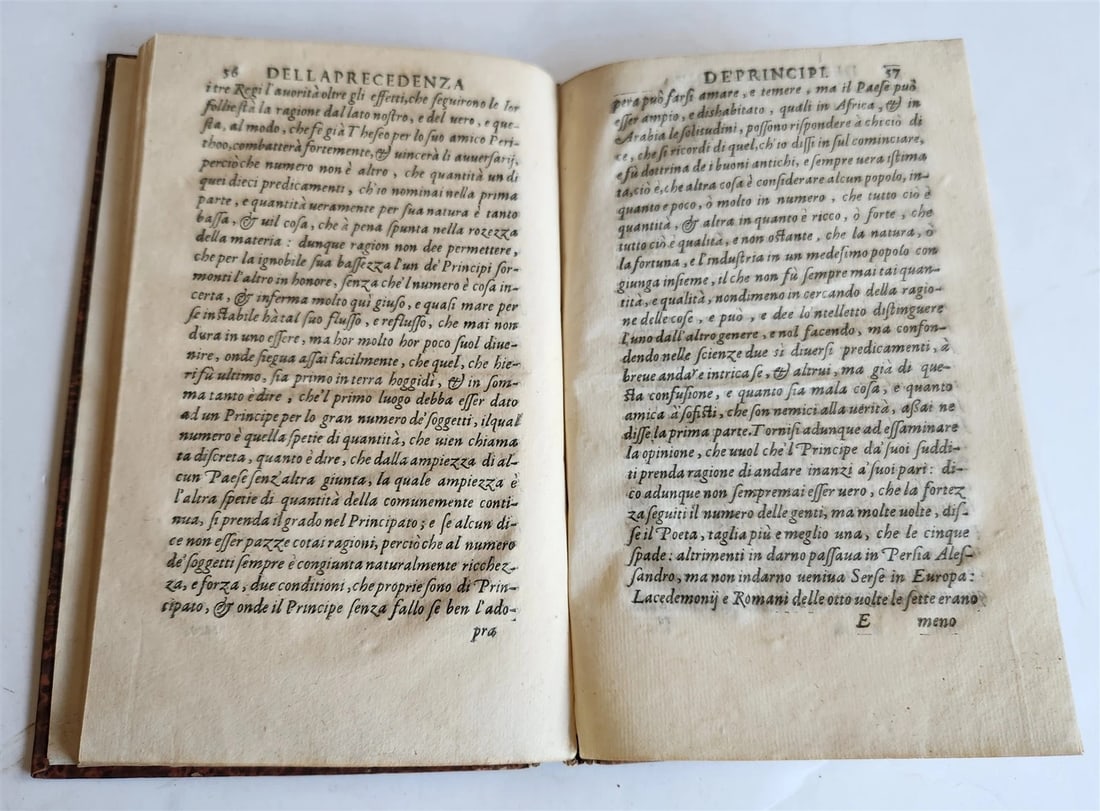 56 DELLA PRECEDENZA
i tre Regi l'auorità oltre gli effetti, che seguirono le lor
follie stà la ragione dal lato nostro, e del uero, e que-
sta, al modo, che fè già Theseo per lo suo amico Peri-
thoo, combatterà fortemente, & vincerà li auuersarij,
perciò che numero non è altro, che quantità un di
quei dieci predicamenti, ch'io nominai nella prima
parte, e quantità ueramente per sua natura è tanto
bassa, & uil cosa, che à pena spunta nella rozezza
della materia: dunque ragion non dee permettere,
che per la ignobile sua bassezza l'un de' Principi sor-
monti l'altro in honore, senza che'l numero è cosa in-
certa, & inferma molto quì giuso, e quasi mare per
se instabile hà tal suo flusso, e reflusso, che mai non
dura in uno essere, ma hor molto hor poco suol diue-
nire, onde siegua assai facilmente, che quel, che hie-
ri fù ultimo, sia primo in terra hoggidì, & in som-
ma tanto è dire, che'l primo luogo debba esser dato
ad un Principe per lo gran numero de' soggetti, il qual
numero è quella spetie di quantità, che uien chiama
ta discreta, quanto è dire, che dalla ampiezza di al-
cun Paese senz'altra giunta, la quale ampiezza è
l'altra spetie di quantità della comunemente conti-
nua, si prenda il grado nel Principato; e se alcun di-
ce non esser pazze cotai ragioni, perciò che al numero
de' soggetti sempre è congiunta naturalmente ricchez-
za, e forza, due conditioni, che proprie sono di Prin-
cipato, & onde il Principe senza fallo se ben l'ado-
pra
DE PRINCIPI. 57
pera può farsi amare, e temere, ma il Paese può
esser ampio, e dishabitato, quali in Africa, & in
Arabia le solitudini, possono rispondere à chi ciò di
ce, che si ricordi di quel, ch'io dissi in sul cominciare,
e fù dottrina de i buoni antichi, e sempre uera istima
ta, ciò è, che altra cosa è considerare alcun popolo, in-
quanto e poco, ò molto in numero, che tutto ciò è
quantità, & altra in quanto è ricco, ò forte, che
tutto ciò è qualità, e non ostante, che la natura, ò
la fortuna, e l'industria in un medesimo popolo con
giunga insieme, il che non fù sempre mai tai quan-
tità, e qualità, nondimeno in cercando della ragio-
ne delle cose, e può, e dee lo'ntelletto distinguere
l'uno dall'altro genere, e nol facendo, ma confon-
dendo nelle scienze due sì diuersi predicamenti, à
breue andare intrica se, & altrui, ma già di que-
sta confusione, e quanto sia mala cosa, e quanto
amica à sofisti, che son nemici alla uerità, assai ne
disse la prima parte. Tornisi adunque ad essaminare
la opinione, che uuol che'l Principe da' suoi suddi-
ti prenda ragione di andare inanzi a' suoi pari: di-
co adunque non sempremai esser uero, che la fortez
za seguiti il numero delle genti, ma molte uolte, dis-
se il Poeta, taglia più e meglio una, che le cinque
spade: altrimenti in darno passaua in Persia Ales-
sandro, ma non indarno ueniua Serse in Europa:
Lacedemonij e Romani delle otto uolte le sette erano
E meno